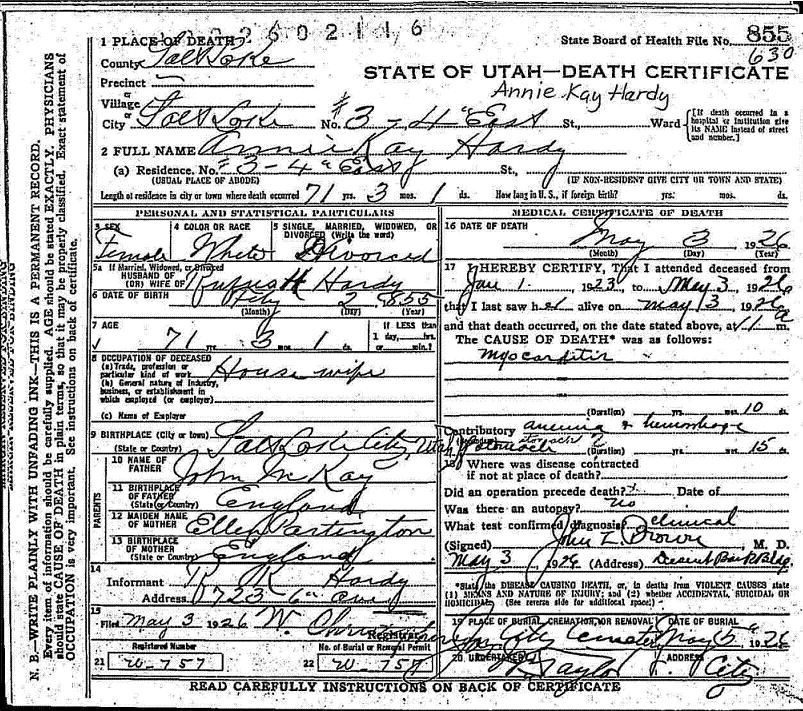 2602116
1 PLACE OF DEATH
State Board of Health File No. 855
630
County Salt Lake
STATE OF UTAH—DEATH CERTIFICATE
Precinct
or
Annie Kay Hardy
Village
or
City Salt Lake No. #3 - 4" East St., Ward
[If death occurred in a hospital or institution give its NAME instead of street and number.]
2 FULL NAME Annie Kay Hardy
(a) Residence. No. #3 - 4" East St.,
(USUAL PLACE OF ABODE) (IF NON-RESIDENT GIVE CITY OR TOWN AND STATE)
Length of residence in city or town where death occurred 71 yrs. 3 mos. 1 ds. How long in U. S., if foreign birth? yrs. mos. ds.
PERSONAL AND STATISTICAL PARTICULARS
3 SEX 4 COLOR OR RACE 5 SINGLE, MARRIED, WIDOWED, OR DIVORCED (Write the word)
Female White Divorced
5a If Married, Widowed, or Divorced
HUSBAND OF
(OR) WIFE OF Rufus H Hardy
6 DATE OF BIRTH 2 1855
(Month) (Day) (Year)
7 AGE 71 yrs. 3 mos. 1 ds.
If LESS than 1 day, hrs. or min.?
8 OCCUPATION OF DECEASED
(a) Trade, profession or particular kind of work House wife
(b) General nature of industry, business, or establishment in which employed (or employer)
(c) Name of Employer
9 BIRTHPLACE (City or town) Salt Lake City Utah
(State or Country)
PARENTS
10 NAME OF FATHER John M Kay
11 BIRTHPLACE OF FATHER England
(State or Country)
12 MAIDEN NAME OF MOTHER Ellen Partington
13 BIRTHPLACE OF MOTHER England
(State or Country)
14
Informant R K Hardy
Address 1723 - 6" Ave
15
Filed May 3 1926 W.
Registrar
Registered Number No. of Burial or Removal Permit
21 W-757 22 W-757
MEDICAL CERTIFICATE OF DEATH
16 DATE OF DEATH May 3 1926
(Month) (Day) (Year)
17 I HEREBY CERTIFY, That I attended deceased from
Jan 1. 1923 to May 3, 1926
that I last saw her alive on May 3 1926
and that death occurred, on the date stated above, at 1 a m.
The CAUSE OF DEATH* was as follows:
Myocarditis
(Duration) yrs. mos. 10 ds.
Contributory anemia & hemorrhage
stomach
(Duration) yrs. mos. 15 ds.
18 Where was disease contracted
if not at place of death?
Did an operation precede death? Date of
Was there an autopsy? no
What test confirmed diagnosis? clinical
(Signed) John Z Brown M. D.
May 3 1926 (Address) Deseret Bank Bldg.
*State the DISEASE CAUSING DEATH, or, in deaths from VIOLENT CAUSES state
(1) MEANS AND NATURE OF INJURY; and (2) whether ACCIDENTAL, SUICIDAL OR
HOMICIDAL. (See reverse side for additional space.)
19 PLACE OF BURIAL, CREMATION, OR REMOVAL DATE OF BURIAL
City Cemetery May 5" 1926
20 UNDERTAKER ADDRESS
Taylor City
READ CAREFULLY INSTRUCTIONS ON BACK OF CERTIFICATE
N. B.—WRITE PLAINLY WITH UNFADING INK—THIS IS A PERMANENT RECORD.
Every item of information should be carefully supplied. AGE should be stated EXACTLY. PHYSICIANS
should state CAUSE OF DEATH in plain terms, so that it may be properly classified. Exact statement of
OCCUPATION is very important. See instructions on back of certificate.